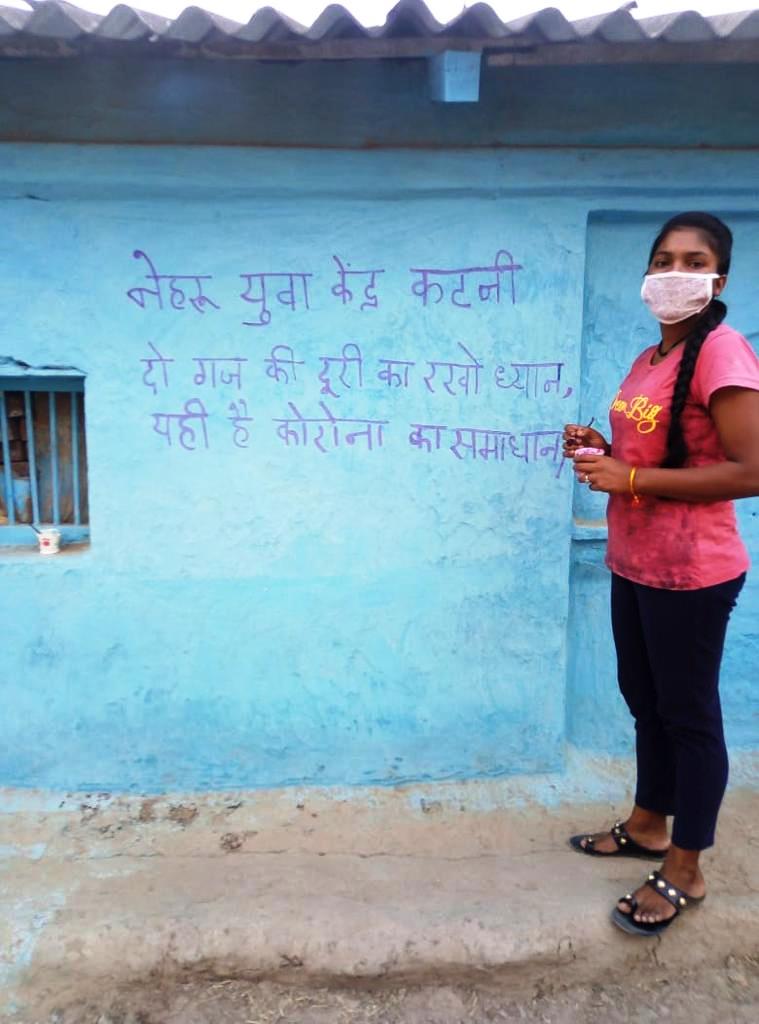 नेहरू युवा केंद्र कटनी
दो गज की दूरी का रखो ध्यान,
यही है कोरोना का समाधान,
Big